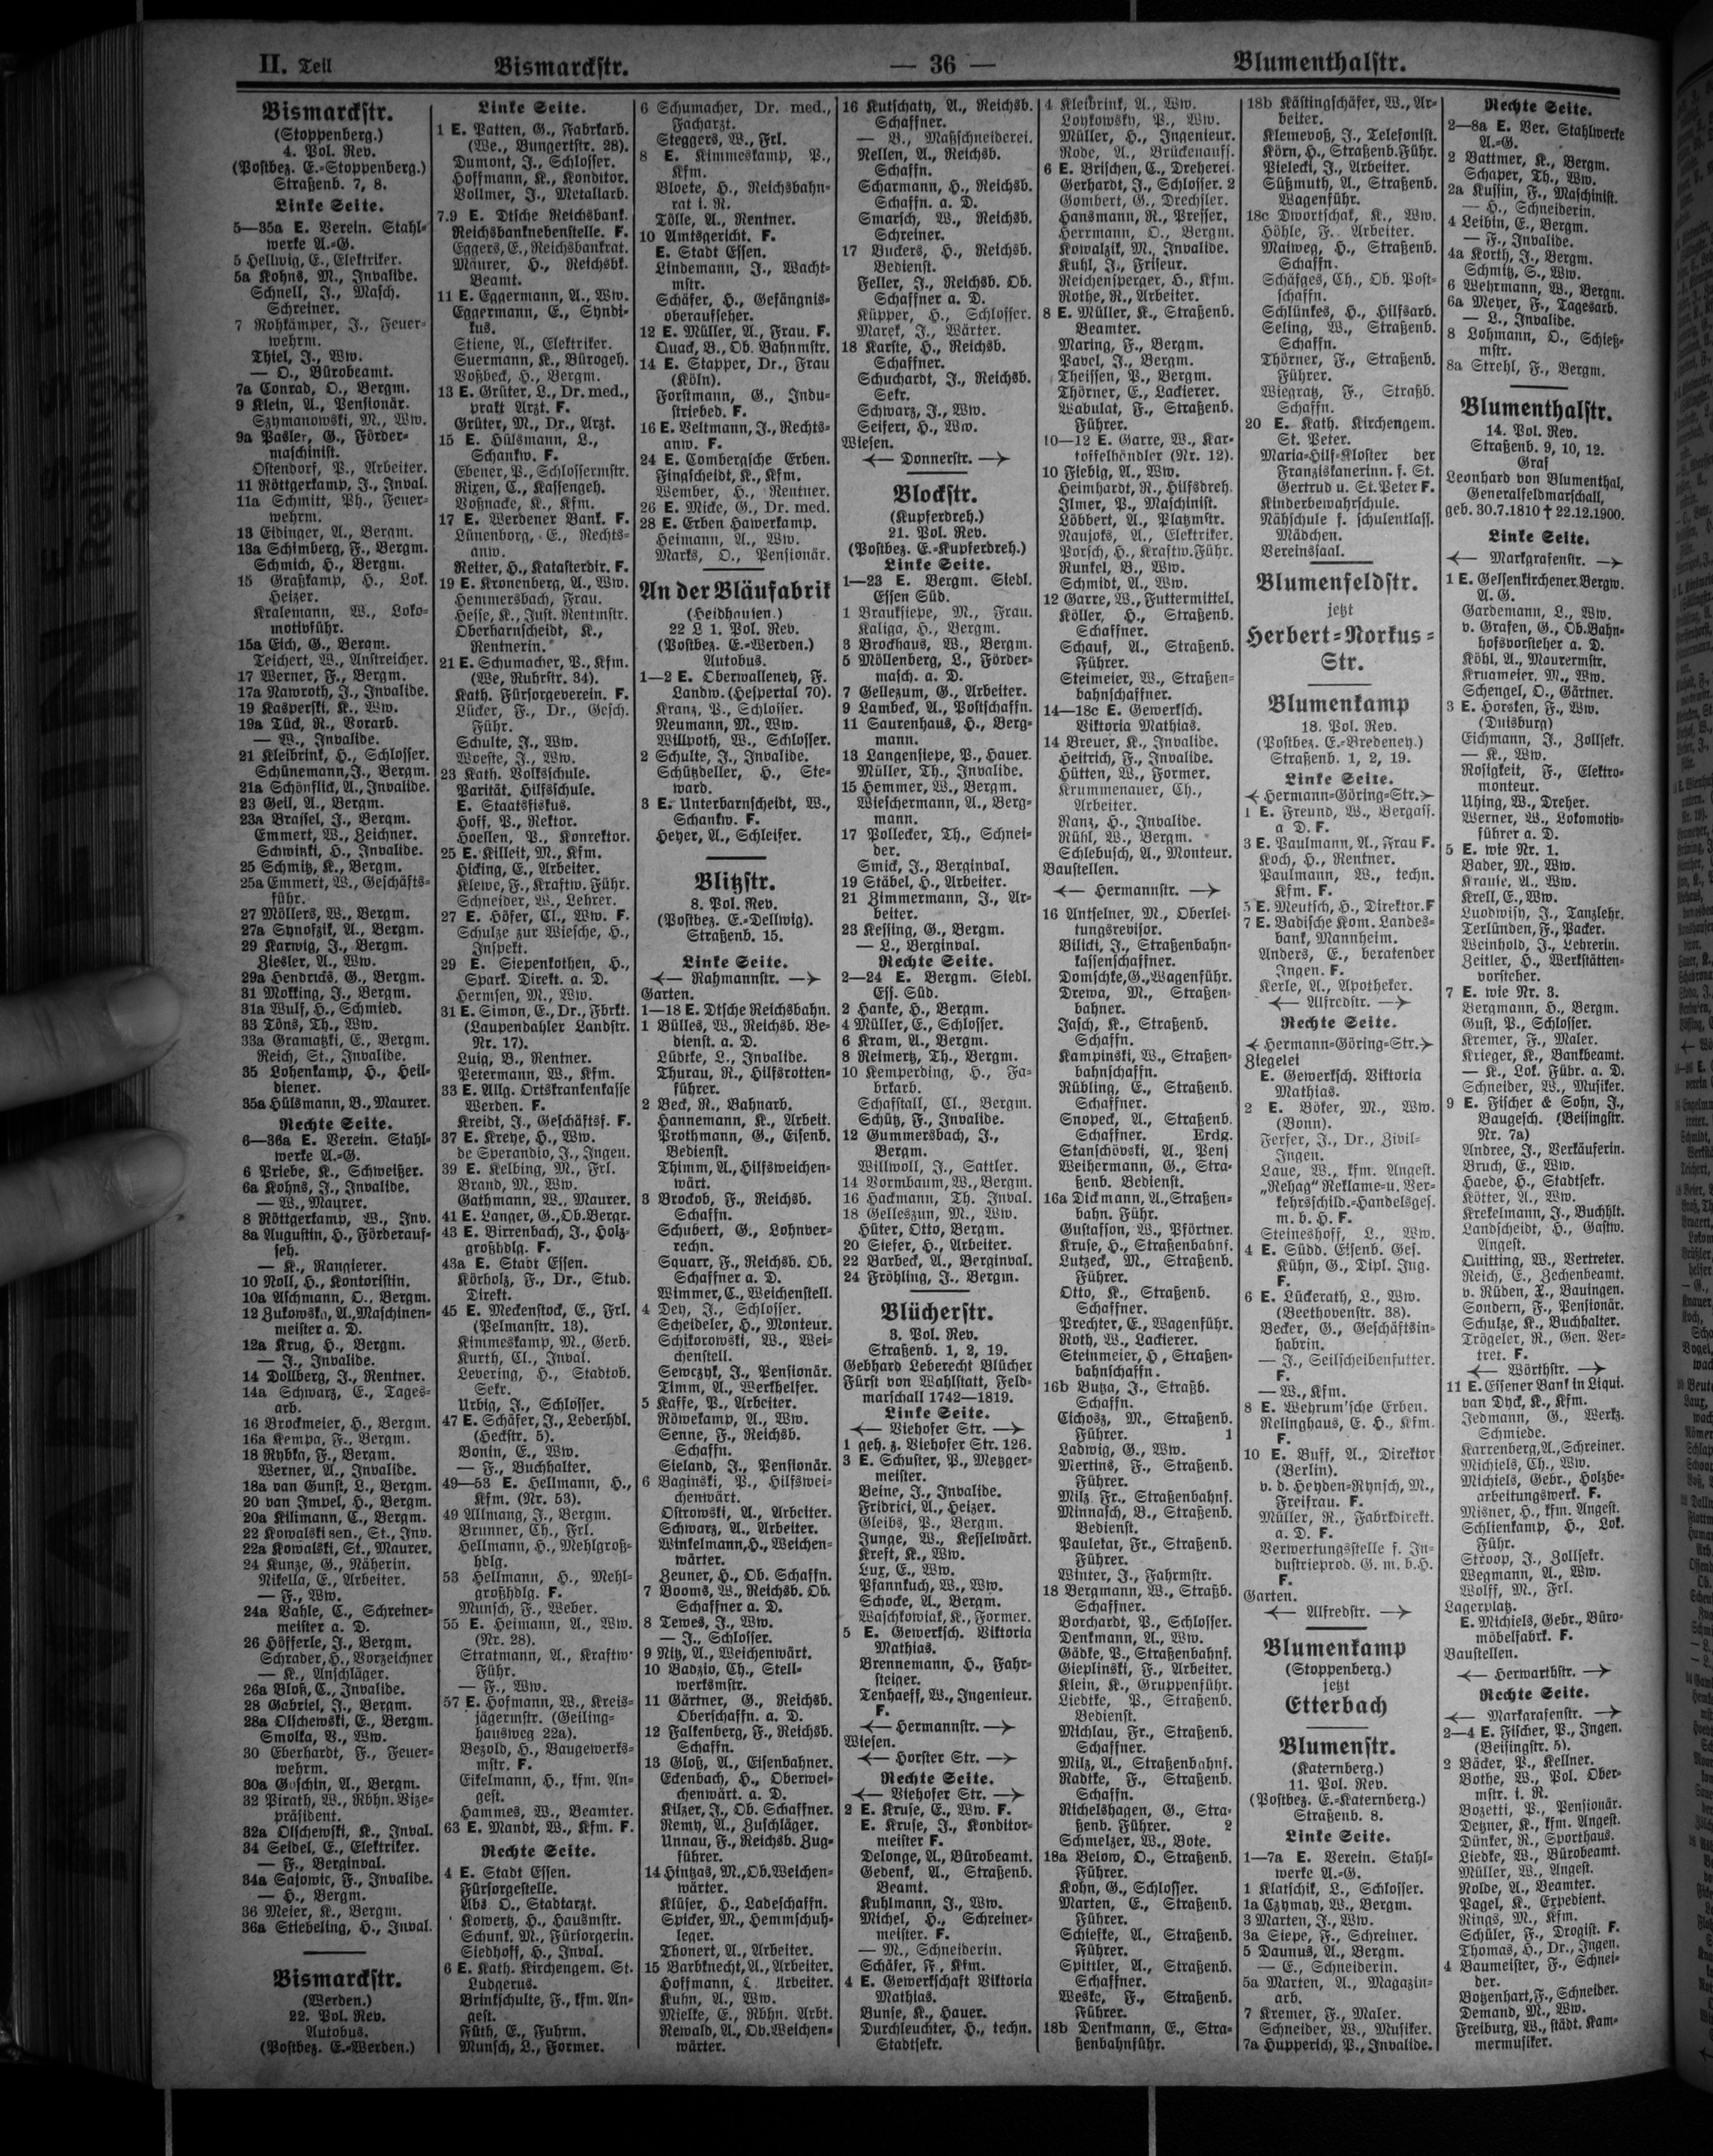 II. Teil
Bismarckstr.
— 36 —
Blumenthalstr.
Bismarckstr.
(Stoppenberg.)
4. Pol. Rev.
(Postbez. E.=Stoppenberg.)
Straßenb. 7, 8.
Linke Seite.
5—35a E. Verein. Stahl=
werke A.=G.
5 Hellwig, E., Elektriker.
5a Kohns, M., Invalide.
Schnell, J., Masch.
Schreiner.
7 Rohkämper, J., Feuer=
wehrm.
Thiel, J., Ww.
— O., Bürobeamt.
7a Conrad, O., Bergm.
9 Klein, A., Pensionär.
Szymanowski, M., Ww.
9a Pasler, G., Förder=
maschinist.
Ostendorf, P., Arbeiter.
11 Röttgerkamp, J., Inval.
11a Schmitt, Ph., Feuer=
wehrm.
13 Eibinger, A., Bergm.
13a Schimberg, F., Bergm.
Schmich, H., Bergm.
15 Graßkamp, H., Lok.
Heizer.
Kralemann, W., Loko=
motivführ.
15a Eich, G., Bergm.
Teichert, W., Anstreicher.
17 Werner, F., Bergm.
17a Nawroth, J., Invalide.
19 Kasperski, K., Ww.
19a Tück, R., Vorarb.
— W., Invalide.
21 Kleibrink, H., Schlosser.
Schünemann, J., Bergm.
21a Schönflick, A., Invalide.
23 Geil, A., Bergm.
23a Brassel, J., Bergm.
Emmert, W., Zeichner.
Schwitzki, H., Invalide.
25 Schmitz, K., Bergm.
25a Emmert, W., Geschäfts=
führ.
27 Möllers, W., Bergm.
27a Synofzik, A., Bergm.
29 Karwig, J., Bergm.
Ziesler, A., Ww.
29a Hendricks, G., Bergm.
31 Mokking, J., Bergm.
31a Wulf, H., Schmied.
33 Töns, Th., Ww.
33a Gramatzki, E., Bergm.
Reich, St., Invalide.
35 Lohenkamp, H., Heil=
diener.
35a Hülsmann, B., Maurer.
Rechte Seite.
6—36a E. Verein. Stahl=
werke A.=G.
6 Priebe, K., Schweißer.
6a Kohns, J., Invalide.
— W., Maurer.
8 Röttgerkamp, W., Inv.
8a Augustin, H., Förderauf=
seh.
— K., Rangierer.
10 Noll, H., Kontoristin.
10a Aschmann, O., Bergm.
12 Zukowska, A., Maschinen=
meister a. D.
12a Krug, H., Bergm.
— J., Invalide.
14 Dollberg, J., Rentner.
14a Schwarz, E., Tages=
arb.
16 Brockmeier, H., Bergm.
16a Kempa, F., Bergm.
18 Rybka, F., Bergm.
Werner, A., Invalide.
18a van Gunst, L., Bergm.
20 van Impel, H., Bergm.
20a Kilimann, C., Bergm.
22 Kowalski sen., St., Inv.
22a Kowalski, St., Maurer.
24 Kunze, G., Näherin.
Nikella, E., Arbeiter.
— F., Ww.
24a Vahle, C., Schreiner=
meister a. D.
26 Höfferle, J., Bergm.
Schrader, H., Vorzeichner
— K., Anschläger.
26a Bloß, C., Invalide.
28 Gabriel, J., Bergm.
28a Olschewski, E., Bergm.
Smolka, V., Ww.
30 Eberhardt, F., Feuer=
wehrm.
30a Goschin, A., Bergm.
32 Pirath, W., Rbhn. Vize=
präsident.
32a Olschewski, K., Inval.
34 Seidel, E., Elektriker.
— F., Berginval.
34a Sajowic, F., Invalide.
— H., Bergm.
36 Meier, K., Bergm.
36a Stiebeling, H., Inval.
Bismarckstr.
(Werden.)
22. Pol. Rev.
Autobus.
(Postbez. E.=Werden.)
Linke Seite.
1 E. Patten, G., Fabrkarb.
(We., Bungertstr. 28).
Dumont, J., Schlosser.
Hoffmann, K., Konditor.
Vollmer, J., Metallarb.
7.9 E. Dtsche Reichsbank.
Reichsbanknebenstelle. F.
Eggers, E., Reichsbankrat.
Maurer, H., Reichsbk.
Beamt.
11 E. Eggermann, A., Ww.
Eggermann, E., Syndi=
kus.
Stiene, A., Elektriker.
Suermann, K., Bürogeh.
Voßbeck, H., Bergm.
13 E. Grüter, L., Dr. med.,
prakt Arzt. F.
Grüter, M., Dr., Arzt.
15 E. Hülsmann, L.,
Schankw. F.
Ebener, P., Schlossermstr.
Rixen, C., Kassengeh.
Voßnacke, K., Kfm.
17 E. Werdener Bank. F.
Lünenborg, E., Rechts=
anw.
Reiter, H., Katasterdir. F.
19 E. Kronenberg, A., Ww.
Hemmersbach, Frau.
Hesse, K., Just. Rentmstr.
Oberbarnscheidt, K.,
Rentnerin.
21 E. Schumacher, P., Kfm.
(We, Ruhrstr. 34).
Kath. Fürsorgeverein. F.
Lücker, F., Dr., Gesch.
Führ.
Schulte, J., Ww.
Woeste, J., Ww.
23 Kath. Volksschule.
Parität. Hilfsschule.
E. Staatsfiskus.
Hoff, P., Rektor.
Hoeslen, P., Konrektor.
25 E. Killeit, M., Kfm.
Hicking, E., Arbeiter.
Klewe, F., Kraftw. Führ.
Schneider, W., Lehrer.
27 E. Höfer, Cl., Ww. F.
Schulze zur Wiesche, H.,
Inspekt.
29 E. Siepenkothen, H.,
Spark. Direkt. a. D.
Hermsen, M., Ww.
31 E. Simon, E., Dr., Fbrkt.
(Laupendahler Landstr.
Nr. 17).
Luig, B., Rentner.
Petermann, W., Kfm.
33 E. Allg. Ortskrankenkasse
Werden. F.
Kreidt, J., Geschäftsf. F.
37 E. Kreye, H., Ww.
de Sperandio, J., Ingen.
39 E. Kelbing, M., Frl.
Brand, M., Ww.
Gathmann, W., Maurer.
41 E. Langer, G., Ob. Bergr.
43 E. Birrenbach, J., Holz=
großhdlg. F.
43a E. Stadt Essen.
Körholz, F., Dr., Stud.
Direkt.
45 E. Meckenstock, E., Frl.
(Pelmanstr. 13).
Kimmeskamp, M., Gerb.
Kurth, Cl., Inval.
Levering, H., Stadtob.
Sekr.
Urbig, J., Schlosser.
47 E. Schäfer, J., Lederhdl.
(Heckstr. 5).
Bonin, E., Ww.
— F., Buchhalter.
49—53 E. Hellmann, H.,
Kfm. (Nr. 53).
49 Allmang, J., Bergm.
Brunner, Ch., Frl.
Hellmann, H., Mehlgroß=
hdlg.
53 Hellmann, H., Mehl=
großhdlg. F.
Munsch, F., Weber.
55 E. Heimann, A., Ww.
(Nr. 28).
Stratmann, A., Kraftw.
Führ.
— F., Ww.
57 E. Hofmann, W., Kreis=
jägermstr. (Geiling=
hausweg 22a).
Bezold, H., Baugewerks=
mstr. F.
Eikelmann, H., kfm. An=
gest.
Hammes, W., Beamter.
63 E. Mandt, W., Kfm. F.
Rechte Seite.
4 E. Stadt Essen.
Fürsorgestelle.
Abs. O., Stadtarzt.
Kowertz, H., Hausmstr.
Schunk, M., Fürsorgerin.
Siedhoff, H., Inval.
6 E. Kath. Kirchengem. St.
Ludgerus.
Brinkschulte, F., kfm. An=
gest.
Füth, E., Fuhrm.
Munsch, L., Former.
6 Schumacher, Dr. med.,
Facharzt.
Steggers, W., Frl.
8 E. Kimmeskamp, P.,
Kfm.
Bloete, H., Reichsbahn=
rat i. R.
Tölle, A., Rentner.
10 Amtsgericht. F.
E. Stadt Essen.
Lindemann, J., Wacht=
mstr.
Schäfer, H., Gefängnis=
oberaufseher.
12 E. Müller, A., Frau. F.
Quack, B., Ob. Bahnmstr.
14 E. Stapper, Dr., Frau
(Köln).
Forstmann, G., Indu=
striebed. F.
16 E. Veltmann, J., Rechts=
anw. F.
24 E. Combergsche Erben.
Fingscheidt, K., Kfm.
Wember, H., Rentner.
26 E. Micke, G., Dr. med.
28 E. Erben Hawerkamp.
Heimann, A., Ww.
Marks, O., Pensionär.
An der Bläufabrik
(Heidhausen.)
22 L 1. Pol. Rev.
(Postbez. E.=Werden.)
Autobus.
1—2 E. Oberwalleney, F.
Landw. (Hespertal 70).
Kranz, P., Schlosser.
Neumann, M., Ww.
Willpoth, W., Schlosser.
2 Schulte, J., Invalide.
Schützdeller, H., Ste=
ward.
3 E. Unterbarnscheidt, W.,
Schankw. F.
Heyer, A., Schleifer.
Blitzstr.
8. Pol. Rev.
(Postbez. E.=Dellwig).
Straßenb. 15.
Linke Seite.
←— Rahmannstr. —→
Garten.
1—18 E. Dtsche Reichsbahn.
1 Bülles, W., Reichsb. Be=
dienst. a. D.
Lüdtke, L., Invalide.
Thurau, R., Hilfsrotten=
führer.
2 Beck, R., Bahnarb.
Hannemann, K., Arbeit.
Prothmann, G., Eisenb.
Bedienst.
Thimm, A., Hilfsweichen=
wärt.
3 Brockob, F., Reichsb.
Schaffn.
Schubert, G., Lohnver=
rechn.
Squarr, F., Reichsb. Ob.
Schaffner a. D.
Wimmer, C., Weichenstell.
4 Dey, J., Schlosser.
Scheideler, H., Monteur.
Schikorowski, W., Wei=
chenstell.
Sewczyk, J., Pensionär.
Timm, A., Werkhelfer.
5 Kaffe, P., Arbeiter.
Röwekamp, A., Ww.
Senne, F., Reichsb.
Schaffn.
Sieland, J., Pensionär.
6 Baginski, P., Hilfswei=
chenwärt.
Ostrowski, A., Arbeiter.
Schwarz, A., Arbeiter.
Winkelmann, H., Weichen=
wärter.
Zeuner, H., Ob. Schaffn.
7 Booms, W., Reichsb. Ob.
Schaffner a. D.
8 Tewes, J., Ww.
— J., Schlosser.
9 Nitz, A., Weichenwärt.
10 Badzio, Ch., Stell=
werksmstr.
11 Gärtner, G., Reichsb.
Oberschaffn. a. D.
12 Falkenberg, F., Reichsb.
Schaffn.
13 Gloß, A., Eisenbahner.
Eckenbach, H., Oberwei=
chenwärt. a. D.
Kilzer, J., Ob. Schaffner.
Remy, A., Zuschläger.
Unnau, F., Reichsb. Zug=
führer.
14 Hintzas, M., Ob. Weichen=
wärter.
Klüser, H., Ladeschaffn.
Spicker, M., Hemmschuh=
leger.
Thonert, A., Arbeiter.
15 Barbknecht, A., Arbeiter.
Hoffmann, L. Arbeiter.
Kuhn, A., Ww.
Mielke, E., Rbhn. Arbt.
Rewald, A., Ob. Weichen=
wärter.
16 Kutschaty, A., Reichsb.
Schaffner.
— V., Maßschneiderei.
Nellen, A., Reichsb.
Schaffn.
Scharmann, H., Reichsb.
Schaffn. a. D.
Smarsch, W., Reichsb.
Schreiner.
17 Buckers, H., Reichsb.
Bedienst.
Feller, J., Reichsb. Ob.
Schaffner a. D.
Küpper, H., Schlosser.
Marek, J., Wärter.
18 Karste, H., Reichsb.
Schaffner.
Schuchardt, J., Reichsb.
Sekr.
Schwarz, J., Ww.
Seifert, H., Ww.
Wiesen.
←— Donnerstr. —→
Blockstr.
(Kupferdreh.)
21. Pol. Rev.
(Postbez. E.=Kupferdreh.)
Linke Seite.
1—23 E. Bergm. Siedl.
Essen Süd.
1 Brauksiepe, M., Frau.
Kaliga, H., Bergm.
3 Brockhaus, W., Bergm.
5 Möllenberg, L., Förder=
masch. a. D.
7 Gelleszum, G., Arbeiter.
9 Lambeck, A., Postschaffn.
11 Saurenhaus, H., Berg=
mann.
13 Langensiepe, P., Hauer.
Müller, Th., Invalide.
15 Hemmer, W., Bergm.
Wieschermann, A., Berg=
mann.
17 Pollecker, Th., Schnei=
der.
Smick, J., Berginval.
19 Stäbel, H., Arbeiter.
21 Zimmermann, J., Ar=
beiter.
23 Kessing, G., Bergm.
— L., Berginval.
Rechte Seite.
2—24 E. Bergm. Siedl.
Ess. Süd.
2 Hanke, H., Bergm.
4 Müller, E., Schlosser.
6 Kram, A., Bergm.
8 Reimertz, Th., Bergm.
10 Kemperding, H., Fa=
brkarb.
Schafstall, Cl., Bergm.
Schütz, F., Invalide.
12 Gummersbach, J.,
Bergm.
Willwoll, J., Sattler.
14 Vormbaum, W., Bergm.
16 Hackmann, Th. Inval.
18 Gelleszun, M., Ww.
Hüter, Otto, Bergm.
20 Siefer, H., Arbeiter.
22 Barbeck, A., Berginval.
24 Fröhling, J., Bergm.
Blücherstr.
3. Pol. Rev.
Straßenb. 1, 2, 19.
Gebhard Leberecht Blücher
Fürst von Wahlstatt, Feld=
marschall 1742—1819.
Linke Seite.
←— Viehofer Str. —→
1 geh. z. Viehofer Str. 126.
3 E. Schuster, P., Metzger=
meister.
Beine, J., Invalide.
Fridrici, A., Heizer.
Gleibs, P., Bergm.
Junge, W., Kesselwärt.
Kreft, K., Ww.
Lux, E., Ww.
Pfannkuch, W., Ww.
Schocke, A., Bergm.
Waschkowiak, K., Former.
5 E. Gewerksch. Viktoria
Mathias.
Brennemann, H., Fahr=
steiger.
Tenhaeff, W., Ingenieur.
F.
←— Hermannstr. —→
Wiesen.
←— Horster Str. —→
Rechte Seite.
←— Viehofer Str. —→
2 E. Kruse, E., Ww. F.
E. Kruse, J., Konditor=
meister F.
Delonge, A., Bürobeamt.
Gedenk, A., Straßenb.
Beamt.
Kuhlmann, J., Ww.
Michel, H., Schreiner=
meister. F.
— M., Schneiderin.
Schäfer, F., Kfm.
4 E. Gewerkschaft Viktoria
Mathias.
Bunse, K., Hauer.
Durchleuchter, H., techn.
Stadtsekr.
4 Kleibrink, A., Ww.
Loykowsky, P., Ww.
Müller, H., Ingenieur.
Rode, A., Brückenauff.
6 E. Brischen, C., Dreherei.
Gerhardt, J., Schlosser. 2
Gombert, G., Drechsler.
Hansmann, R., Presser,
Herrmann, O., Bergm.
Kowalzik, M., Invalide.
Kuhl, J., Friseur.
Reichensperger, H., Kfm.
Rothe, R., Arbeiter.
8 E. Müller, K., Straßenb.
Beamter.
Maring, F., Bergm.
Pavel, J., Bergm.
Theissen, P., Bergm.
Thörner, E., Lackierer.
Wabulat, F., Straßenb.
Führer.
10—12 E. Garre, W., Kar=
toffelhändler (Nr. 12).
10 Fiebig, A., Ww.
Heimhardt, R., Hilfsdreh.
Ilmer, P., Maschinist.
Löbbert, A., Platzmstr.
Naujoks, A., Elektriker.
Porsch, H., Kraftw. Führ.
Runkel, B., Ww.
Schmidt, A., Ww.
12 Garre, W., Futtermittel.
Köller, H., Straßenb.
Schaffner.
Schauf, A., Straßenb.
Führer.
Steimeier, W., Straßen=
bahnschaffner.
14—18c E. Gewerksch.
Viktoria Mathias.
14 Breuer, K., Invalide.
Heitrich, F., Invalide.
Hütten, W., Former.
Krummenauer, Ch.,
Arbeiter.
Ranz, H., Invalide.
Rühl, W., Bergm.
Schlebusch, A., Monteur.
Baustellen.
←— Hermannstr. —→
16 Antselner, M., Oberlei=
tungsrevisor.
Bilicki, J., Straßenbahn=
kassenschaffner.
Domschke, G., Wagenführ.
Drewa, M., Straßen=
bahner.
Jasch, K., Straßenb.
Schaffn.
Kampinski, W., Straßen=
bahnschaffn.
Rübling, E., Straßenb.
Schaffner.
Snopeck, A., Straßenb.
Schaffner. Erdg.
Stanschövski, A., Pens
Weihermann, G., Stra=
ßenb. Bedienst.
16a Dickmann, A., Straßen=
bahn. Führ.
Gustafson, W., Pförtner.
Kruse, H., Straßenbahnf.
Lutzeck, M., Straßenb.
Führer.
Otto, K., Straßenb.
Schaffner.
Prechter, E., Wagenführ.
Roth, W., Lackierer.
Steinmeier, H., Straßen=
bahnschaffn.
16b Butza, J., Straßb.
Schaffn.
Cichosz, M., Straßenb.
Führer. 1
Ladwig, G., Ww.
Mertins, F., Straßenb.
Führer.
Milz, Fr., Straßenbahnf.
Minnasch, B., Straßenb.
Bedienst.
Pauletat, Fr., Straßenb.
Führer.
Winter, J., Fahrmstr.
18 Bergmann, W., Straßb.
Schaffner.
Borchardt, P., Schlosser.
Denkmann, A., Ww.
Gädke, P., Straßenbahnf.
Gieplinski, F., Arbeiter.
Klein, K., Gruppenführ.
Liedtke, P., Straßenb.
Bedienst.
Michlau, Fr., Straßenb.
Schaffner.
Milz, A., Straßenbahnf.
Radtke, F., Straßenb.
Schaffn.
Richelshagen, G., Stra=
ßenb. Führer. 2
Schmelzer, W., Bote.
18a Below, O., Straßenb.
Führer.
Kohn, G., Schlosser.
Marten, E., Straßenb.
Führer.
Schiefke, A., Straßenb.
Führer.
Spittler, A., Straßenb.
Schaffner.
Weske, F., Straßenb.
Führer.
18b Denkmann, E., Stra=
ßenbahnführ.
18b Kästingschäfer, W., Ar=
beiter.
Klemevoß, J., Telefonist.
Körn, H., Straßenb. Führ.
Pielecki, J., Arbeiter.
Süßmuth, A., Straßenb.
Wagenführ.
18c Dwortschak, K., Ww.
Höhle, F. Arbeiter.
Maiweg, H., Straßenb.
Schaffn.
Schäfges, Ch., Ob. Post=
schaffn.
Schlünkes, H., Hilfsarb.
Seling, W., Straßenb.
Schaffn.
Thörner, F., Straßenb.
Führer.
Wiegratz, F., Straßb.
Schaffn.
20 E. Kath. Kirchengem.
St. Peter.
Maria=Hilf=Kloster der
Franziskanerinn. f. St.
Gertrud u. St. Peter F.
Kinderbewahrschule.
Nähschule f. schulentlass.
Mädchen.
Vereinssaal.
Blumenfeldstr.
jetzt
Herbert=Norkus=
Str.
Blumenkamp
18. Pol. Rev.
(Postbez. E.=Bredeney.)
Straßenb. 1, 2, 19.
Linke Seite.
←Hermann=Göring=Str.→
1 E. Freund, W., Bergass.
a D. F.
3 E. Paulmann, A., Frau F.
Koch, H., Rentner.
Paulmann, W., techn.
Kfm. F.
5 E. Meutsch, H., Direktor. F
7 E. Badische Kom. Landes=
bank, Mannheim.
Anders, E., beratender
Ingen. F.
Kerle, A., Apotheker.
←— Alfredstr. —→
Rechte Seite.
←Hermann=Göring=Str.→
Ziegelei
E. Gewerksch. Viktoria
Mathias.
2 E. Böker, M., Ww.
(Bonn).
Ferfer, J., Dr., Zivil=
Ingen.
Laue, W., kfm. Angest.
„Rehag" Reklame=u. Ver=
kehrsschild.=Handelsges.
m. b. H. F.
Steineshoff, L., Ww.
4 E. Südd. Eisenb. Ges.
Kühn, G., Dipl. Ing.
F.
6 E. Lückerath, L., Ww.
(Beethovenstr. 38).
Becker, G., Geschäftsin=
habrin.
— J., Seilscheibenfutter.
F.
— W., Kfm.
8 E. Wehrum'sche Erben.
Relinghaus, E. H., Kfm.
F.
10 E. Buff, A., Direktor
(Berlin).
v. d. Heyden=Rynsch, M.,
Freifrau. F.
Müller, R., Fabrkdirekt.
a. D. F.
Verwertungsstelle f. In=
dustrieprod. G. m. b. H.
F.
Garten.
←— Alfredstr. —→
Blumenkamp
(Stoppenberg.)
jetzt
Etterbach
Blumenstr.
(Katernberg.)
11. Pol. Rev.
(Postbez. E.=Katernberg.)
Straßenb. 8.
Linke Seite.
1—7a E. Verein. Stahl=
werke A.=G.
1 Klatschik, L., Schlosser.
1a Czymay, W., Bergm.
3 Marten, J., Ww.
3a Siepe, F., Schreiner.
5 Daunus, A., Bergm.
— E., Schneiderin.
5a Marten, A., Magazin=
arb.
7 Kremer, F., Maler.
Schneider, W., Musiker.
7a Hupperich, P., Invalide.
Rechte Seite.
2—8a E. Ver. Stahlwerke
A.=G.
2 Battmer, K., Bergm.
Schaper, Th., Ww.
2a Kussin, F., Maschinist.
— H., Schneiderin.
4 Leibin, E., Bergm.
— F., Invalide.
4a Korth, J., Bergm.
Schmitz, S., Ww.
6 Wehrmann, W., Bergm.
6a Meyer, F., Tagesarb.
— L., Invalide.
8 Lohmann, O., Schieß=
mstr.
8a Strehl, F., Bergm.
Blumenthalstr.
14. Pol. Rev.
Straßenb. 9, 10, 12.
Graf
Leonhard von Blumenthal,
Generalfeldmarschall,
geb. 30.7.1810 † 22.12.1900.
Linke Seite.
←— Markgrafenstr. —→
1 E. Gelsenkirchener. Bergw.
A. G.
Gardemann, L., Ww.
v. Grafen, G., Ob. Bahn=
hofsvorsteher a. D.
Köhl, A., Maurermstr.
Kruameier, M., Ww.
Schengel, O., Gärtner.
3 E. Horsken, F., Ww.
(Duisburg)
Eichmann, J., Zollsekr.
— K., Ww.
Rosigkeit, F., Elektro=
monteur.
Uhing, W., Dreher.
Werner, W., Lokomotiv=
führer a. D.
5 E. wie Nr. 1.
Baber, M., Ww.
Krause, A., Ww.
Krell, E., Ww.
Luodwisy, J., Tanzlehr.
Terlünden, F., Packer.
Weinhold, J., Lehrerin.
Zeitler, H., Werkstätten=
vorsteher.
7 E. wie Nr. 3.
Bergmann, H., Bergm.
Gust, P., Schlosser.
Kremer, F., Maler.
Krieger, K., Bankbeamt.
— K., Lok. Führ. a. D.
Schneider, W., Musiker.
9 E. Fischer & Sohn, J.,
Baugesch. (Beisingstr.
Nr. 7a)
Andree, J., Verkäuferin.
Bruch, E., Ww.
Haede, H., Stadtsekr.
Kötter, A., Ww.
Krekelmann, J., Buchhlt.
Landscheidt, H., Gastw.
Angest.
Quitting, W., Vertreter.
Reich, E., Zechenbeamt.
v. Rüden, X., Bauingen.
Sondern, F., Pensionär.
Schulze, K., Buchhalter.
Trögeler, R., Gen. Ver=
tret. F.
←— Wörthstr. —→
11 E. Essener Bank in Liqui.
van Dyck, K., Kfm.
Jedmann, G., Werkz.
Schmiede.
Karrenberg, A., Schreiner.
Michiels, Ch., Ww.
Michiels, Gebr., Holzbe=
arbeitungswerk. F.
Misner, H., kfm. Angest.
Schlienkamp, H., Lok.
Führ.
Stroop, J., Zollsekr.
Wegmann, A., Ww.
Wolff, M., Frl.
Lagerplatz.
E. Michiels, Gebr., Büro=
möbelfabrk. F.
Baustellen.
←— Herwarthstr. —→
Rechte Seite.
←— Markgrafenstr. —→
2—4 E. Fischer, P., Ingen.
(Beisingstr. 5).
2 Bäcker, P., Kellner.
Bothe, W., Pol. Ober=
mstr. i. R.
Bozetti, P., Pensionär.
Detzner, K., kfm. Angest.
Dünker, R., Sporthaus.
Liedke, W., Bürobeamt.
Müller, W., Angest.
Nolde, A., Beamter.
Pagel, K., Expedient.
Rings, M., Kfm.
Schüler, F., Drogist. F.
Thomas, H., Dr., Ingen.
4 Baumeister, F., Schnei=
der.
Botzenhart, F., Schneider.
Demand, M., Ww.
Freiburg, W., städt. Kam=
mermusiker.